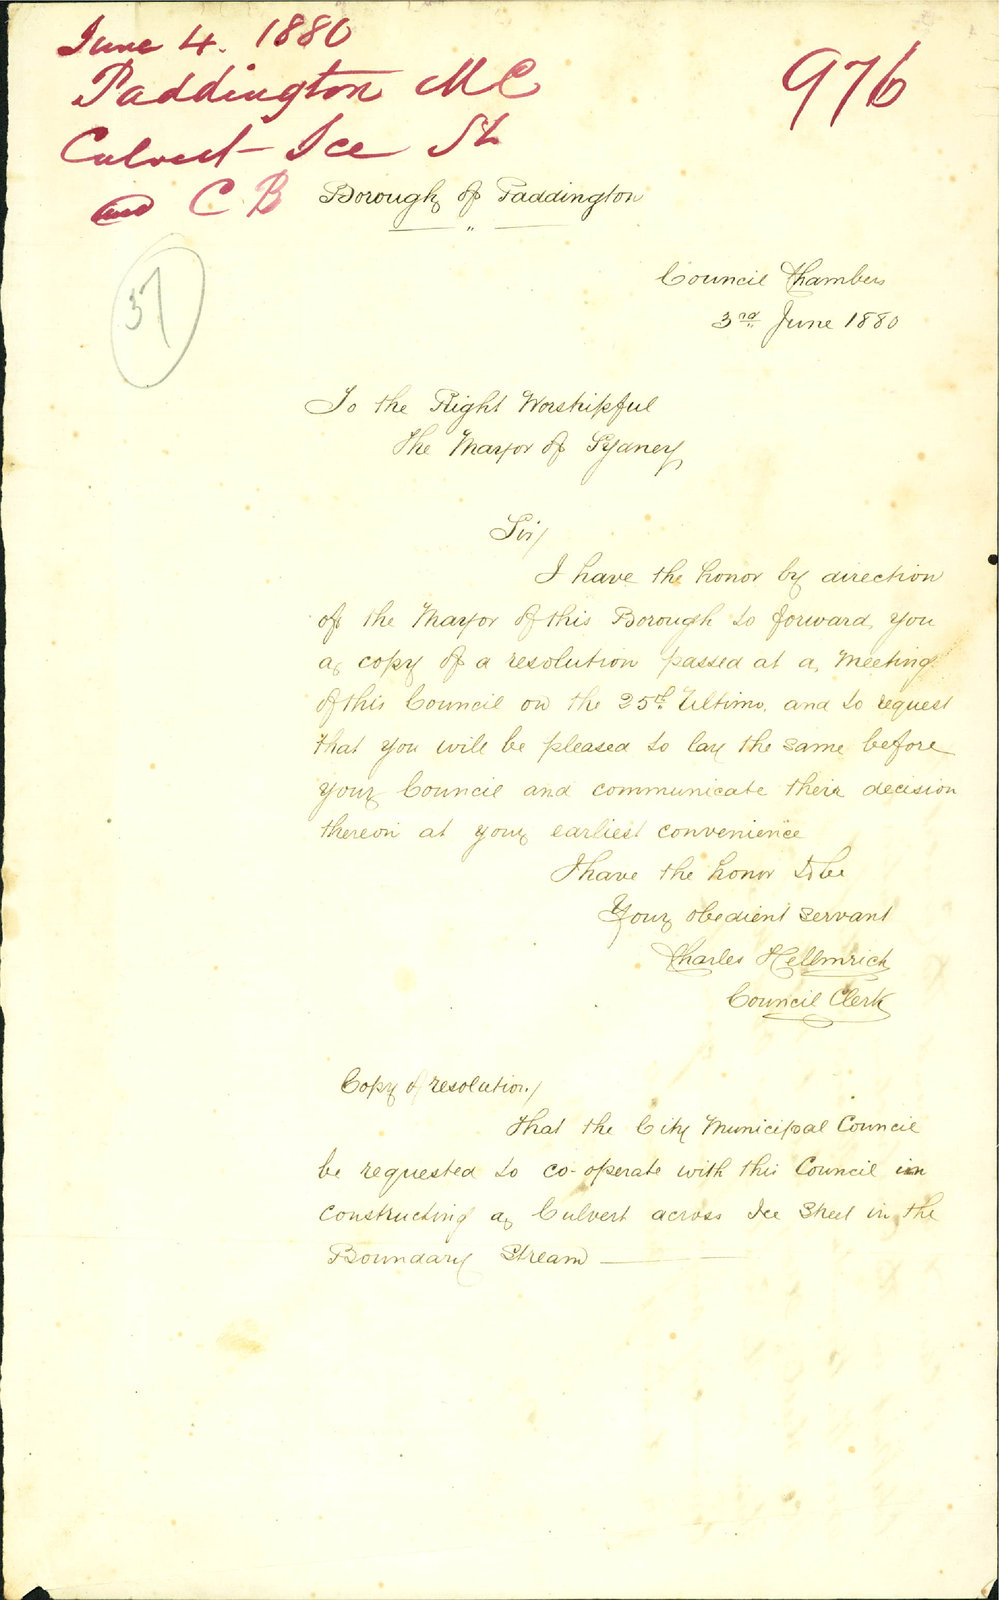 June 4. 1880
976
Paddington MC
Culvert Ice St
and C B
Borough of Paddington
37
Council Chambers
3rd June 1880
To the Right Worshipful
The Mayor of Sydney
Sir/
I have the honor by direction
of the Mayor of this Borough to forward you
a copy of a resolution passed at a Meeting
of this Council on the 25th Ultimo, and to request
that you will be pleased to lay the same before
your Council and communicate their decision
thereon at your earliest convenience
I have the honor to be
Your obedient servant
Charles Hellmrich
Council Clerk
Copy of resolution/
That the City Municipal Council
be requested to co-operate with this Council in
constructing a Culvert across Ice Street in the
Boundary Stream